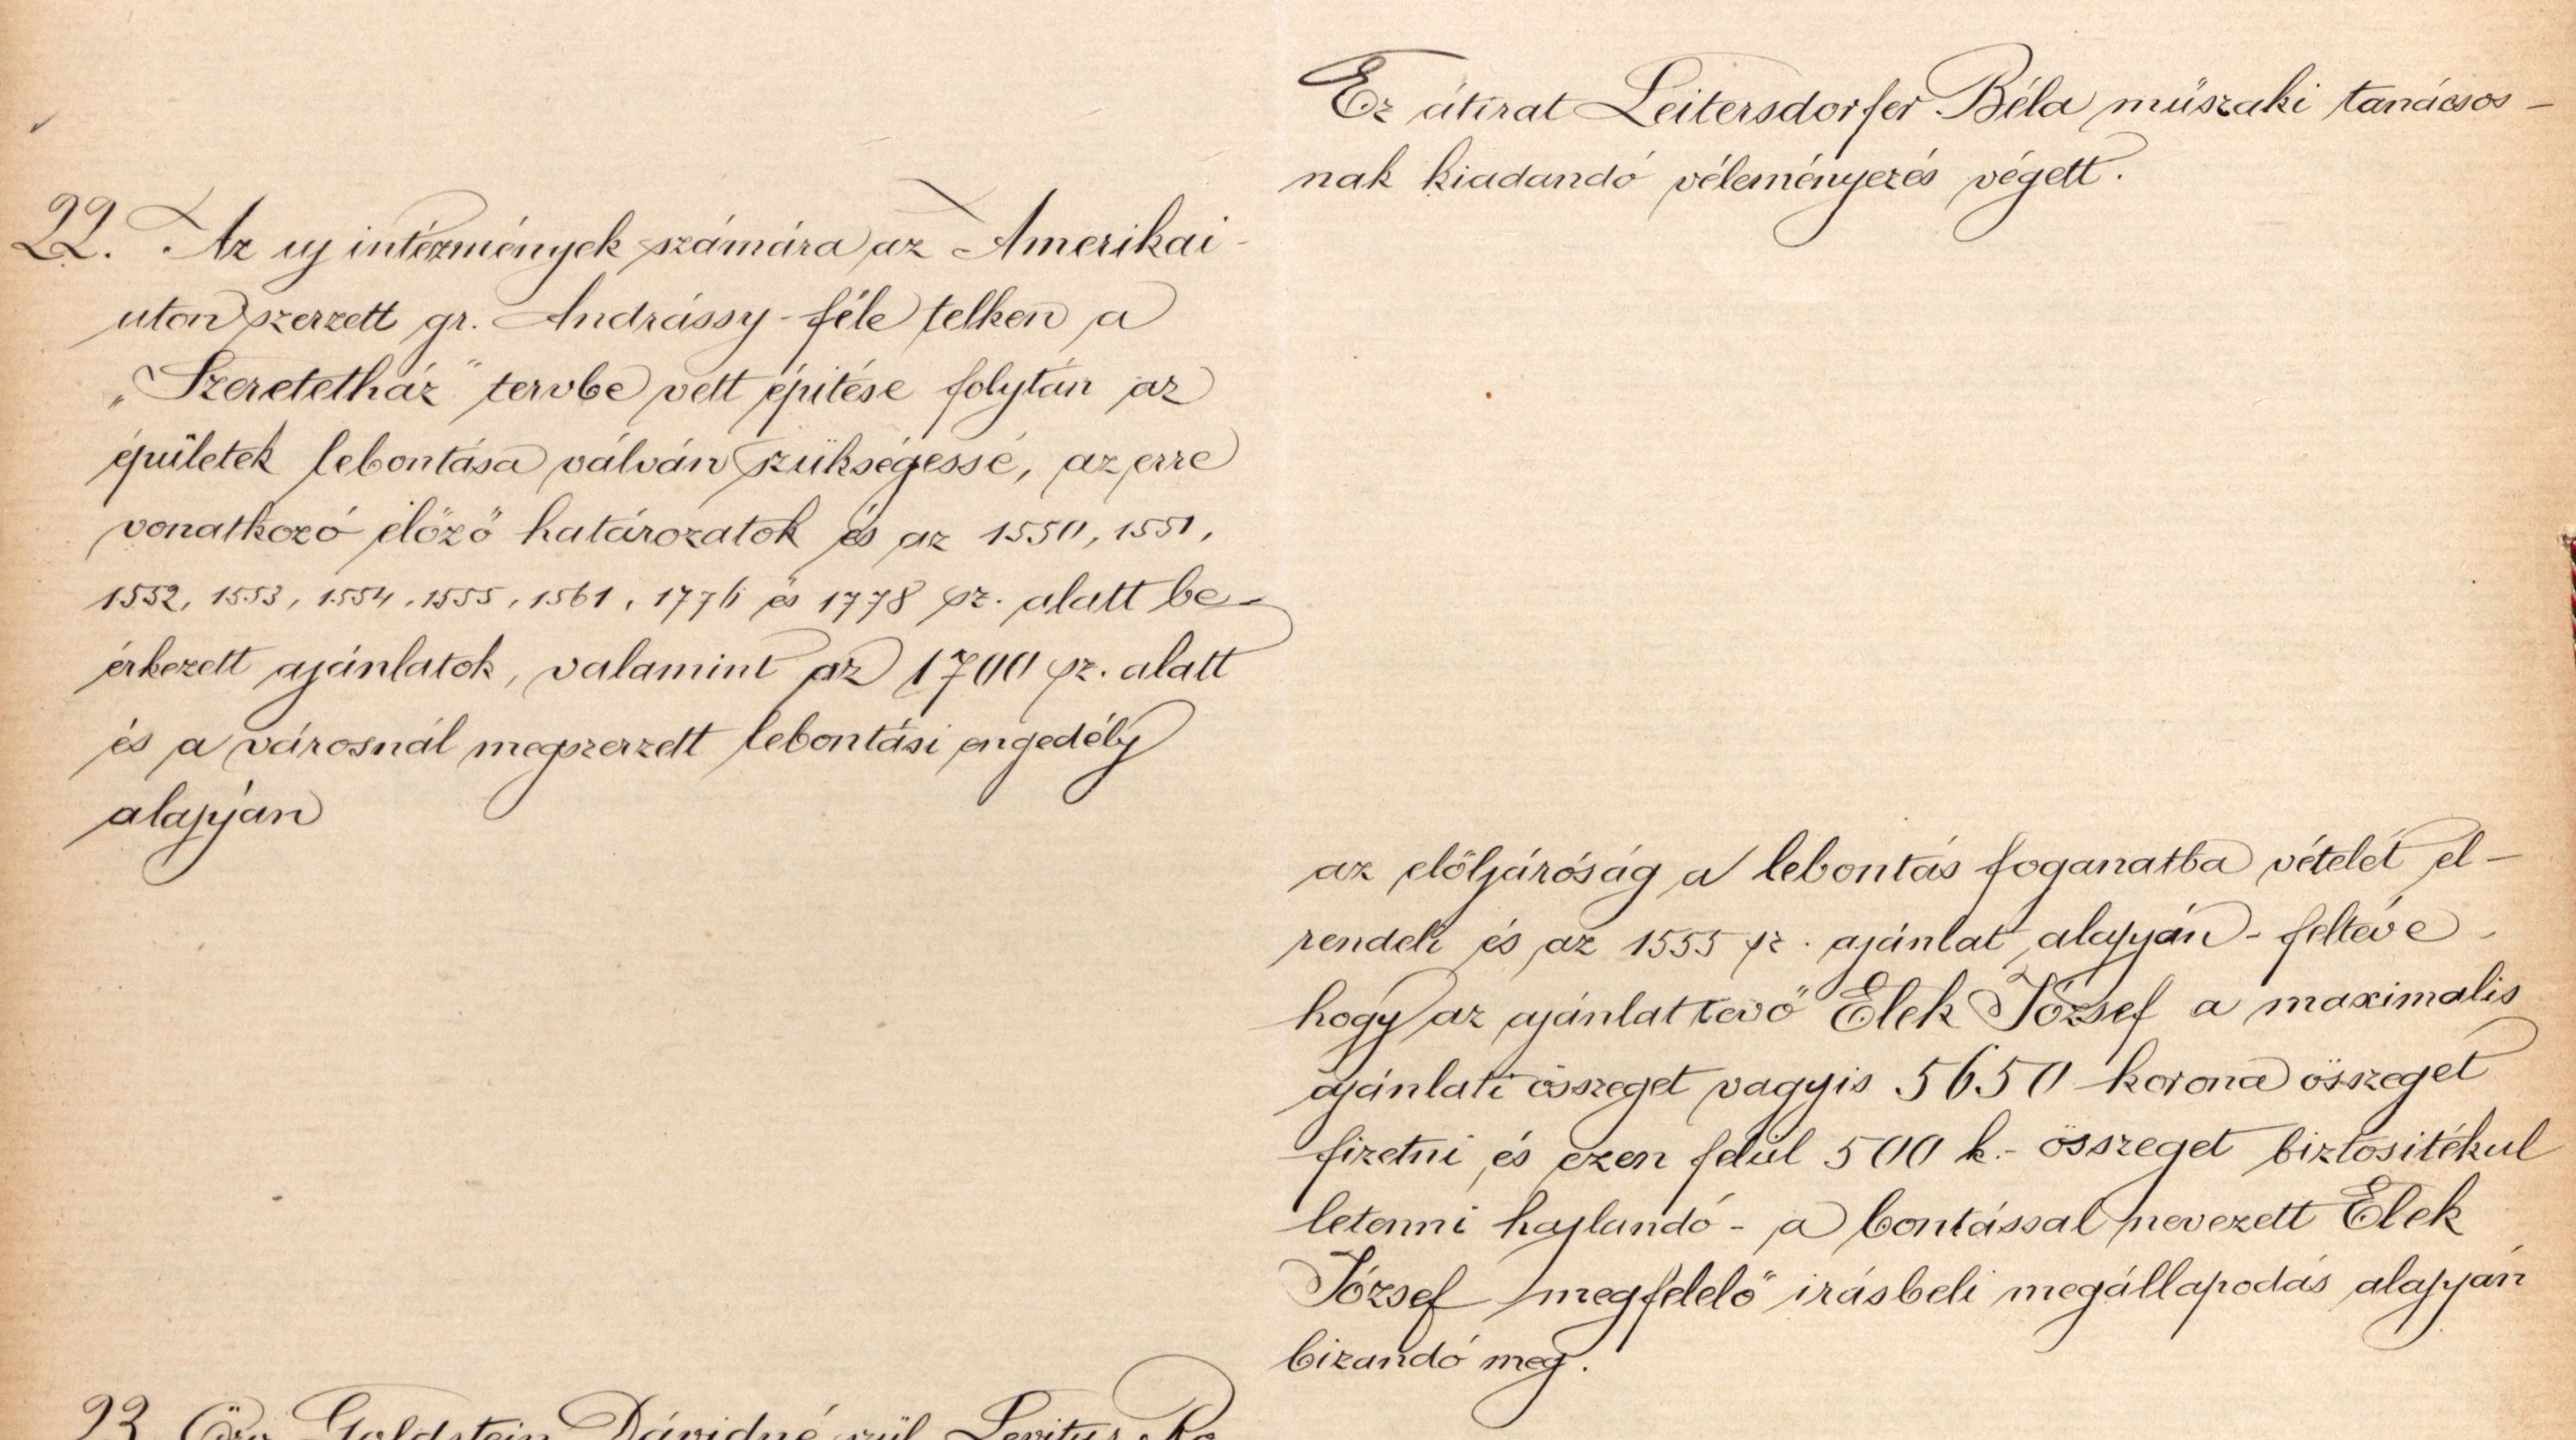 Ez átirat Leitersdorfer Béla müszaki tanácsos-
nak kiadandó véleményezés végett.
22. Az uj intézmények számára az Amerikai-
uton szerzett gr. Andrássy-féle telken a
„Szeretetház" tervbe vett épitése folytán az
épületek lebontása válván szükségessé, az erre
vonatkozó előző határozatok és az 1550, 1551,
1552, 1553, 1554, 1555, 1561, 1776 és 1778 sz. alatt be-
érkezett ajánlatok, valamint az 1700 sz. alatt
és a városnál megszerzett lebontási engedély
alapján
az előljáróság a lebontás foganatba vételét el-
rendeli és az 1555 sz. ajánlat alapján - feltéve,
hogy az ajánlattevő Elek József a maximalis
ajánlati összeget vagyis 5650 korona összeget
fizetni és ezen felül 500 k.- összeget biztositékul
letenni hajlandó - a bontással nevezett Elek
József megfelelő irásbeli megállapodás alapján
bizandó meg.
23. Özv. Goldstein Dávidné szül. Levitus Ro